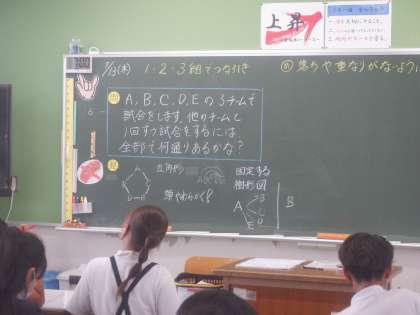 上昇
7/13(木) 1・2・3組でつな引き
め 落ちや重なりがないように
問
A、B、C、D、Eの5チームで
試合をします。他のチームと
1回ずつ試合をするには、
全部で何通りあるかな?
見
五角形
A
B
C
D
E
頭やわらかく
ABCDE
固定する
樹形図
A
B
C
D
E
B